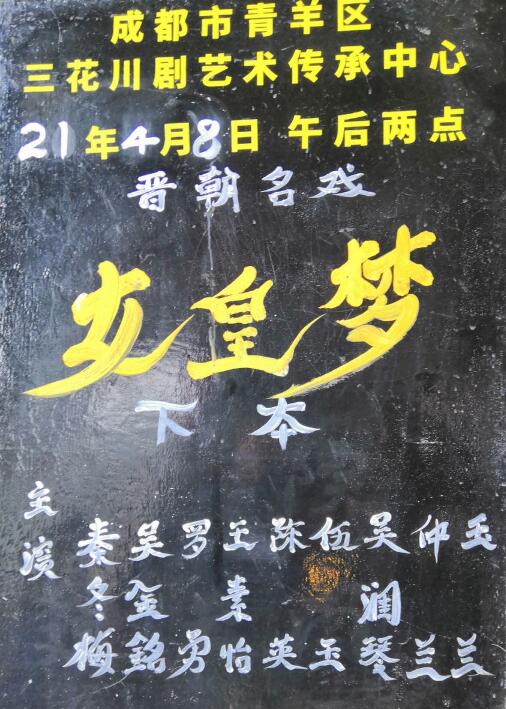 成都市青羊区
三花川剧艺术传承中心
21年4月8日 午后两点
晋朝名戏
女皇梦
下本
主演
秦冬梅
吴金銘
罗勇
王素怡
陈英
伍玉
吴润琴
仲兰
玉兰